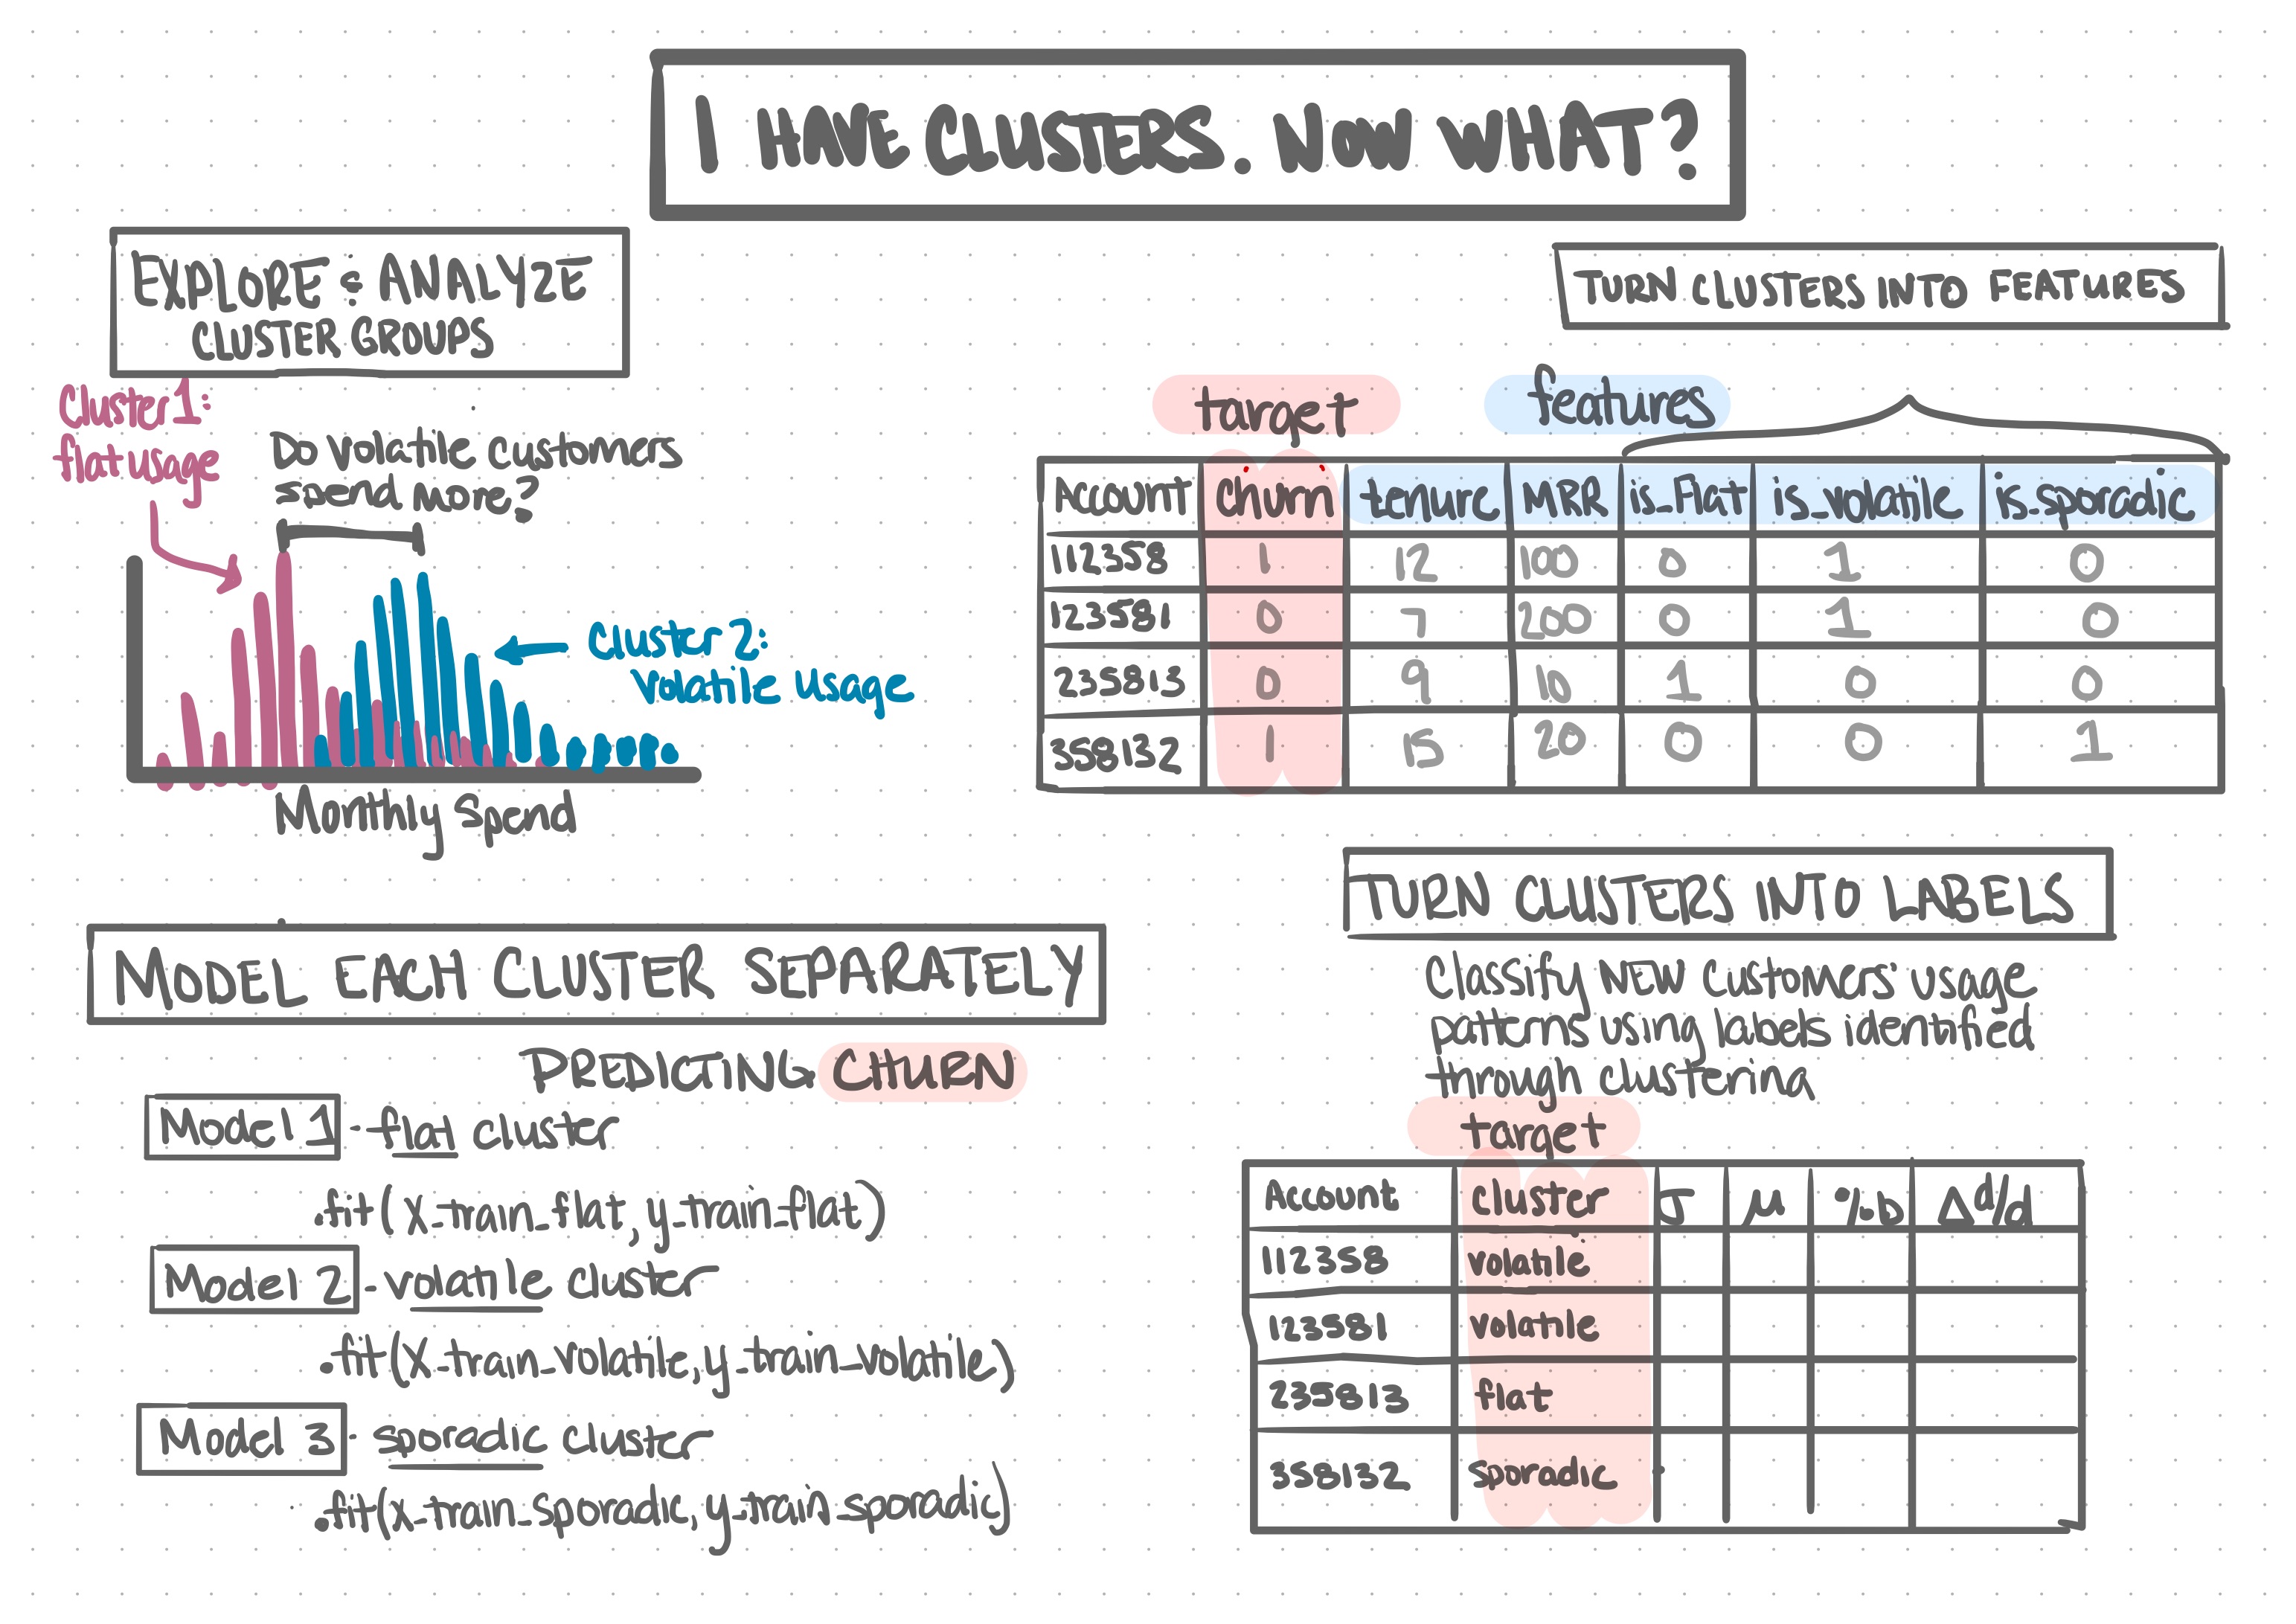 I HAVE CLUSTERS. NOW WHAT?
EXPLORE & ANALYZE
CLUSTER GROUPS
Cluster 1:
flat usage
Do volatile customers
spend more?
Cluster 2:
Volatile usage
Monthly Spend
TURN CLUSTERS INTO FEATURES
target features
Account churn tenure MRR is_Flat is_volatile is_sporadic
112358 1 12 100 0 1 0
123581 0 7 200 0 1 0
235813 0 9 10 1 0 0
358132 1 15 20 0 0 1
MODEL EACH CLUSTER SEPARATELY
PREDICTING CHURN
Model 1 - flat cluster
.fit(x_train_flat, y_train_flat)
Model 2 - volatile cluster
.fit(x_train_volatile, y_train_volatile)
Model 3 - sporadic cluster
.fit(x_train_sporadic, y_train_sporadic)
TURN CLUSTERS INTO LABELS
Classify NEW customers' usage
patterns using labels identified
through clustering
target
Account cluster σ μ %b Δ d/d
112358 volatile
123581 volatile
235813 flat
358132 sporadic